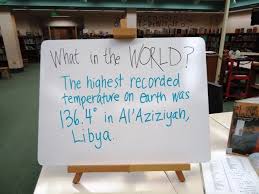 What in the WORLD?
The highest recorded
temperature on earth was
136.4° in Al'Aziziyah,
Libya.